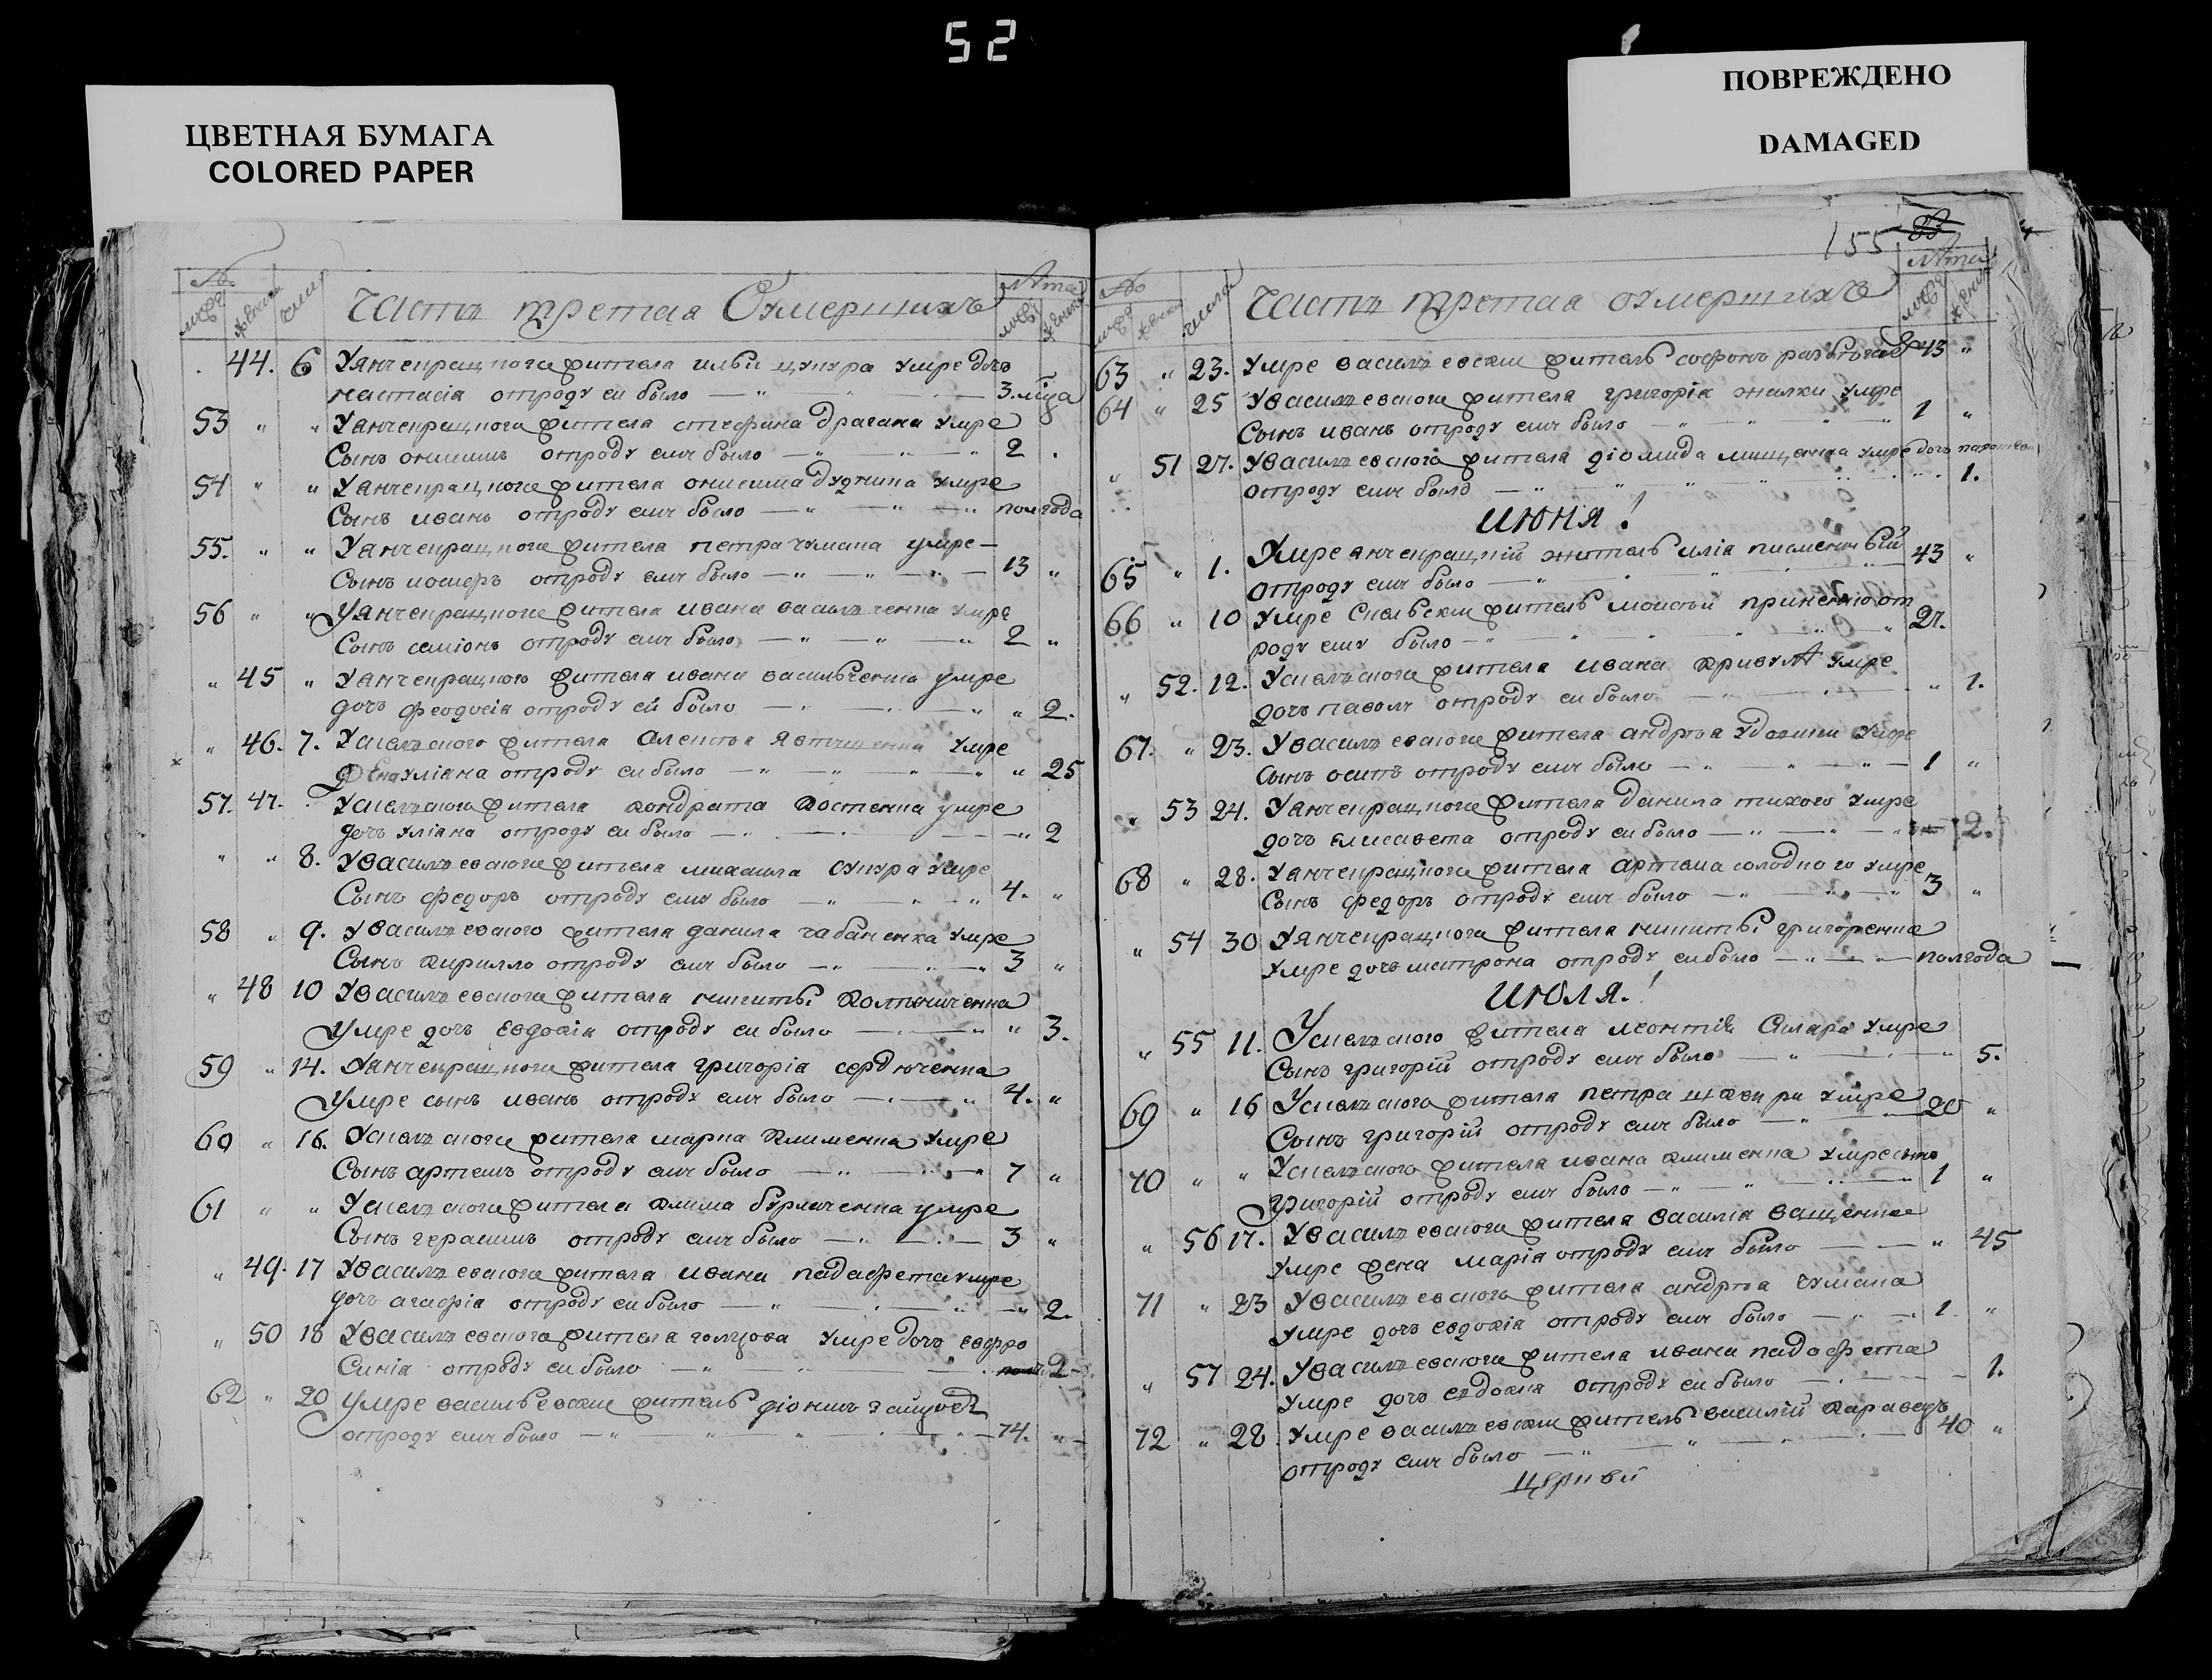 52
ЦВЕТНАЯ БУМАГА
COLORED PAPER
ПОВРЕЖДЕНО
DAMAGED
№ Часть третая Оумершихъ Лѣта
44. 6 Уанчекрацкого жителя ильи цупура умре дочь
настасія отроду еи было 3. мца
53 " " Уанчекрацкого жителя стефана драгана умре
Сынъ онисимъ отроду ему было 2
54 " " Уанчекрацкого жителя онисима дудника умре
Сынъ иванъ отроду ему было пол года
55. " " Уанчекрацкого жителя петра чумака умре
Сынъ иосифъ отроду ему было 13 "
56 " " Уанчекрацкого жителя ивана василченка умре
Сынъ симіонъ отроду ему было 2 "
" 45 " Уанчекрацкого жителя ивана васильченка умре
дочь феодосія отроду ей было " 2.
" 46. 7. жителя алексѣя умре
жена уліана отроду еи было " 25
57. 47. жителя кондрата костенка умре
дочь уліана отроду еи было " 2
" " 8. Увасилъевского жителя михаила умре
Сынъ федоръ отроду ему было 4. "
58 " 9. Увасилъевского жителя данила чабаненка умре
Сынъ кирилло отроду ему было 3 "
" 48 10 Увасилъевского жителя никиты
Умре дочь евдокія отроду еи было " 3.
59 " 14. Уанчекрацкого жителя григорія сердюченка
Умре сынъ иванъ отроду ему было 4. "
60 " 16. жителя марка клименка умре
Сынъ артемъ отроду ему было 7 "
61 " " жителя клима бурлаченка умре
Сынъ герасимъ отроду ему было 3 "
" 49. 17 Увасилъевского жителя ивана падафета умре
дочь агафія отроду еи было " 2.
" 50 18 Увасилъевского жителя голцова умре дочь евфро
Синія отроду еи было 2
62 " 20 Умре васильевски житель діонисъ
отроду ему было 74. "
155
№ числа Часть третая оумершихъ Лѣта
63 " 23. Умре василъевски житель софонъ 43 "
64 " 25 Увасилъевского жителя григорія жилки умре
Сынъ иванъ отроду ему было 1 "
" 51 27. Увасилъевского жителя діомида мищенка умре дочь
отроду ему было 1.
июня!
65 " 1. Умре анчекрацкій житель илія
отроду ему было 43 "
66 " 10 Умре житель моисѣй от
роду ему было 27.
" 52. 12. жителя ивана умре
дочь отроду еи было " 1.
67. " 23. Увасилъевского жителя андрѣя умре
сынъ осипъ отроду ему было 1 "
" 53 24. Уанчекрацкого жителя данила тихого умре
дочь елисавета отроду еи было 2.
68 " 28. Уанчекрацкого жителя артема солодкого умре
Сынъ федоръ отроду ему было 3 "
" 54 30 Уанчекрацкого жителя никиты григоренка
умре дочь матрона отроду еи было полгода
июля.!
" 55 11. жителя леонтія умре
Сынъ григорій отроду ему было " 5.
69 " 16 жителя петра умре
Сынъ григорій отроду ему было 20 "
70 " " жителя ивана клименка умре сынъ
григорій отроду ему было 1 "
" 56 17. Увасилъевского жителя василія ващенка
умре жена марія отроду ему было " 45
71 " 23 Увасилъевского жителя андрѣя чумака
умре дочь евдокія отроду ему было 1. "
" 57 24. Увасилъевского жителя ивана падафета
умре дочь евдокия отроду еи было 1.
72 " 28. Умре василъевски житель василій
отроду ему было 40 "
церкви